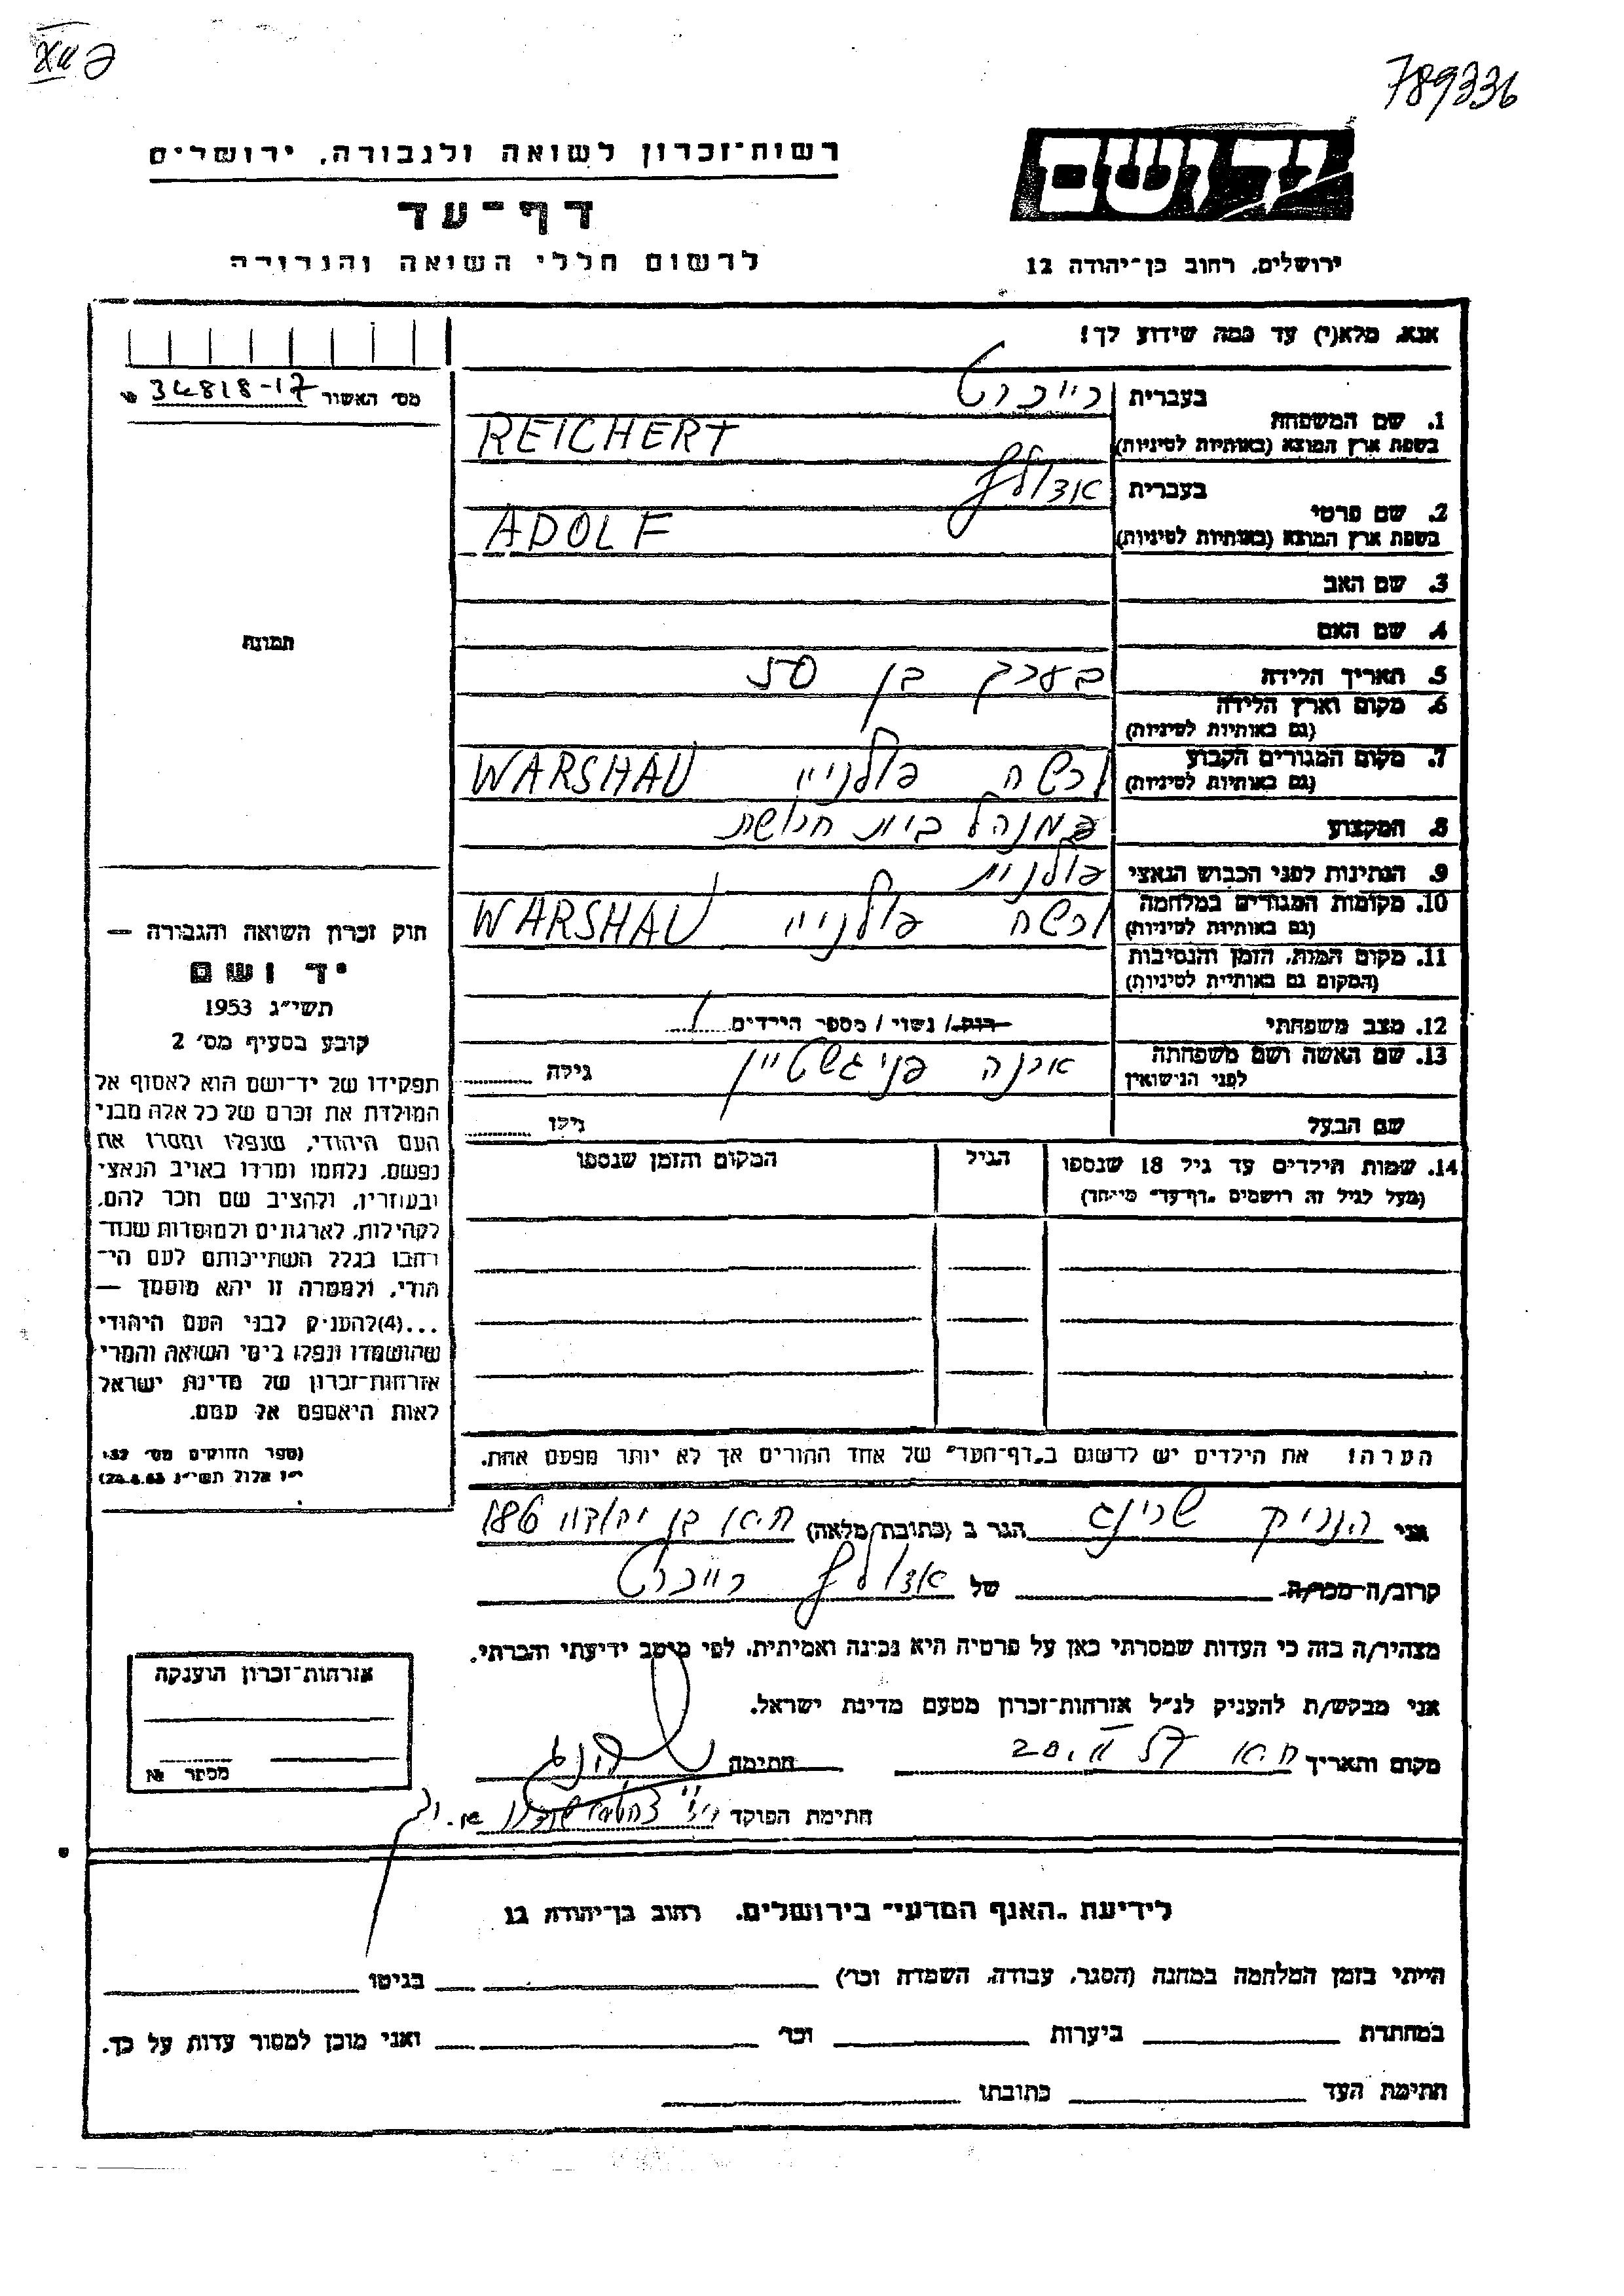 789336
יד ושם
ירושלים, רחוב בן־יהודה 12
רשות־זכרון לשואה ולגבורה, ירושלים
דף־עד
לרשום חללי השואה והגבורה
אנא, מלא(י) עד כמה שידוע לך!
מס' האשור 34818-17
בעברית רייכרט
1. שם המשפחה
בשפת ארץ המוצא (באותיות לטיניות) REICHERT
בעברית אדולף
2. שם פרטי
בשפת ארץ המוצא (באותיות לטיניות) ADOLF
3. שם האב
4. שם האם
5. תאריך הלידה בערך בן 50
6. מקום וארץ הלידה
(גם באותיות לטיניות)
7. מקום המגורים הקבוע ורשה פולניי WARSHAU
(גם באותיות לטיניות)
8. המקצוע מנהל בית חרושת
9. הנתינות לפני הכבוש הנאצי פולנית
10. מקומות המגורים במלחמה ורשה פולניי WARSHAU
(גם באותיות לטיניות)
11. מקום המות, הזמן והנסיבות
(המקום גם באותיות לטיניות)
12. מצב משפחתי רווק / נשוי / מספר הילדים 1
13. שם האשה ושם משפחתה גילה
לפני הנישואין
שם הבעל גילו
14. שמות הילדים עד גיל 18 שנספו הגיל המקום והזמן שנספו
(מעל לגיל זה רושמים "דף־עד" מיוחד)
הערה! את הילדים יש לרשום ב"דף־העד" של אחד ההורים אך לא יותר מפעם אחת.
תמונה
חוק זכרון השואה והגבורה —
יד ושם
תשי"ג 1953
קובע בסעיף מס' 2
תפקידו של יד־ושם הוא לאסוף אל
המולדת את זכרם של כל אלה מבני
העם היהודי, שנפלו ומסרו את
נפשם, נלחמו ומרדו באויב הנאצי
ובעוזריו, ולהציב שם וזכר להם,
לקהילות, לארגונים ולמוסדות שנח־
רבו בגלל השתייכותם לעם הי־
הודי, ולמטרה זו יהא מוסמך —
...(4) להעניק לבני העם היהודי
שהושמדו ונפלו בימי השואה והמרי
אזרחות־זכרון של מדינת ישראל
לאות היאספם אל עמם.
(ספר החוקים מס' 132
י"ז אלול תשי"ג 28.8.53)
אני הנריק שרינג הגר ב (כתובת מלאה) ת"א בן יהודה 186
קרוב/ה מכר/ה של אדולף רייכרט
מצהיר/ה בזה כי העדות שמסרתי כאן על פרטיה היא נכונה ואמיתית, לפי מיטב ידיעתי והכרתי.
אני מבקש/ת להעניק לנ"ל אזרחות־זכרון מטעם מדינת ישראל.
מקום ותאריך ת"א 20.II 57 חתימה
חתימת הפוקד
אזרחות־זכרון הוענקה
מספר №
לידיעת "האגף המדעי" בירושלים, רחוב בן־יהודה 12
הייתי בזמן המלחמה במחנה (הסגר, עבודה, השמדה וכו') בגיטו
במחתרת ביערות וכו' ואני מוכן למסור עדות על כך.
חתימת העד כתובתו